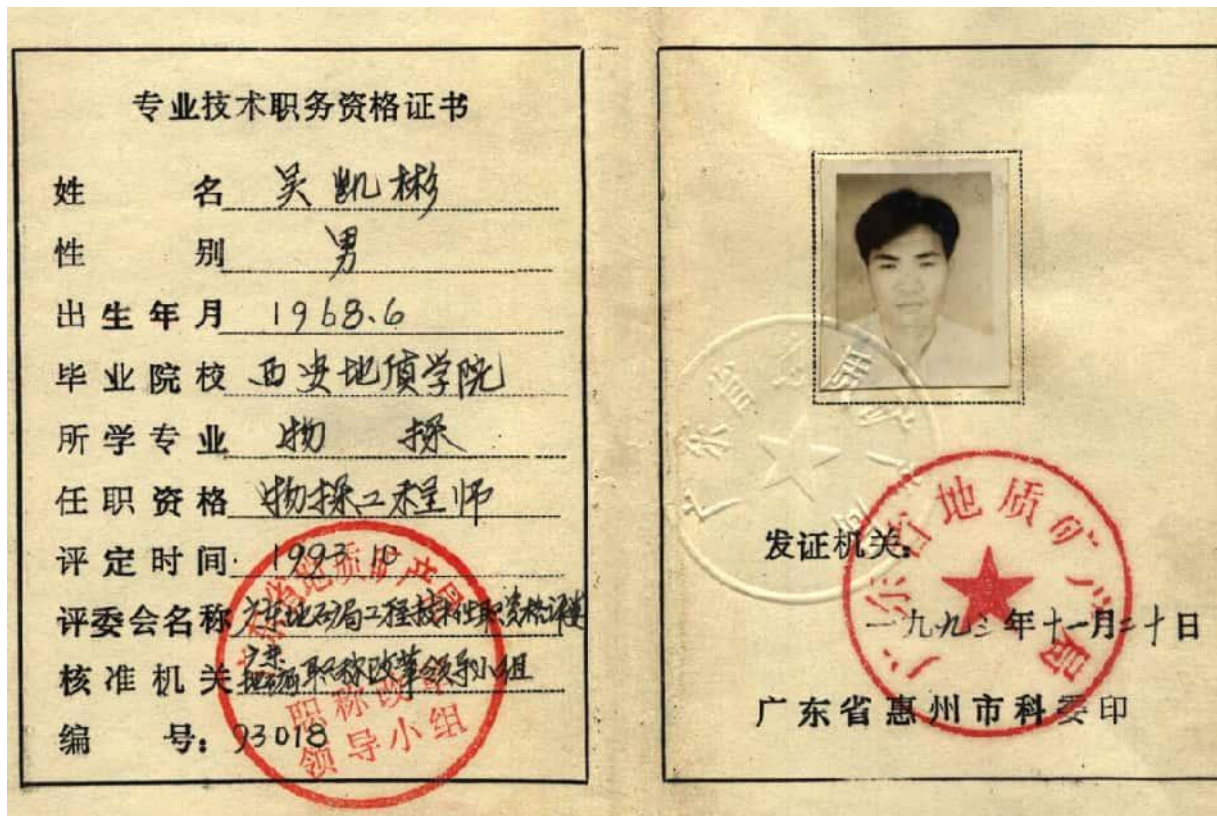 专业技术职务资格证书
姓名 吴凯彬
性别 男
出生年月 1968.6
毕业院校 西安地质学院
所学专业 物探
任职资格 物探工程师
评定时间: 1993.10
评委会名称 广东地矿局工程技术任职资格评委
核准机关 广东地矿局职称改革领导小组
编号: 93018
广东省地质矿产局
职称改革
领导小组
发证机关:
广东省地质矿产局
一九九三年十一月二十日
广东省惠州市科委印